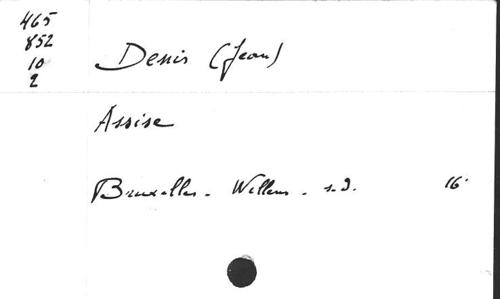 465
852
10
2
Denis (Jean)
Assise
Bruxelles - Willems - s.d. 16°